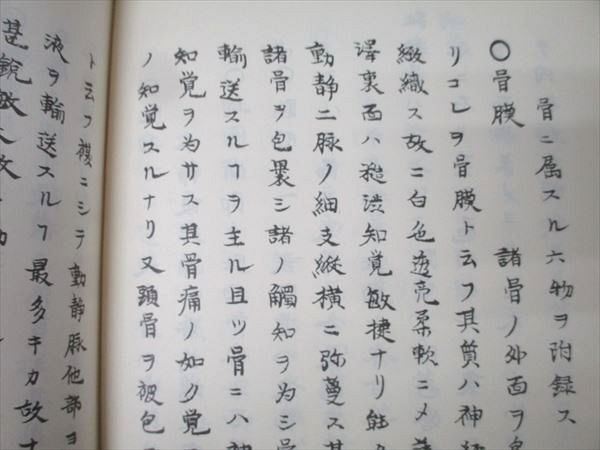 骨ニ属スル六物ヲ附録ス
〇骨膜 諸骨ノ外面ヲ
リコレヲ骨膜ト云フ其質ハ神経
緻織ス故ニ白色透亮柔軟ニメ
澤裏面ハ糙渋知覚敏捷ナリ能ク
動静二脉ノ細支縦横ニ弥蔓ス其
諸骨ヲ包裹シ諸ノ觸知ヲ為シ骨
輸送スルヿヲ主ル且ツ骨ニハ神
知覚ヲ為サス其骨痛ノ如ク覚
ノ知覚スルナリ又頭骨ヲ被包
ト云フ複ニシテ動静脉他部ヨ
液ヲ輸送スルヿ最多キカ故ナ
甚鋭敏